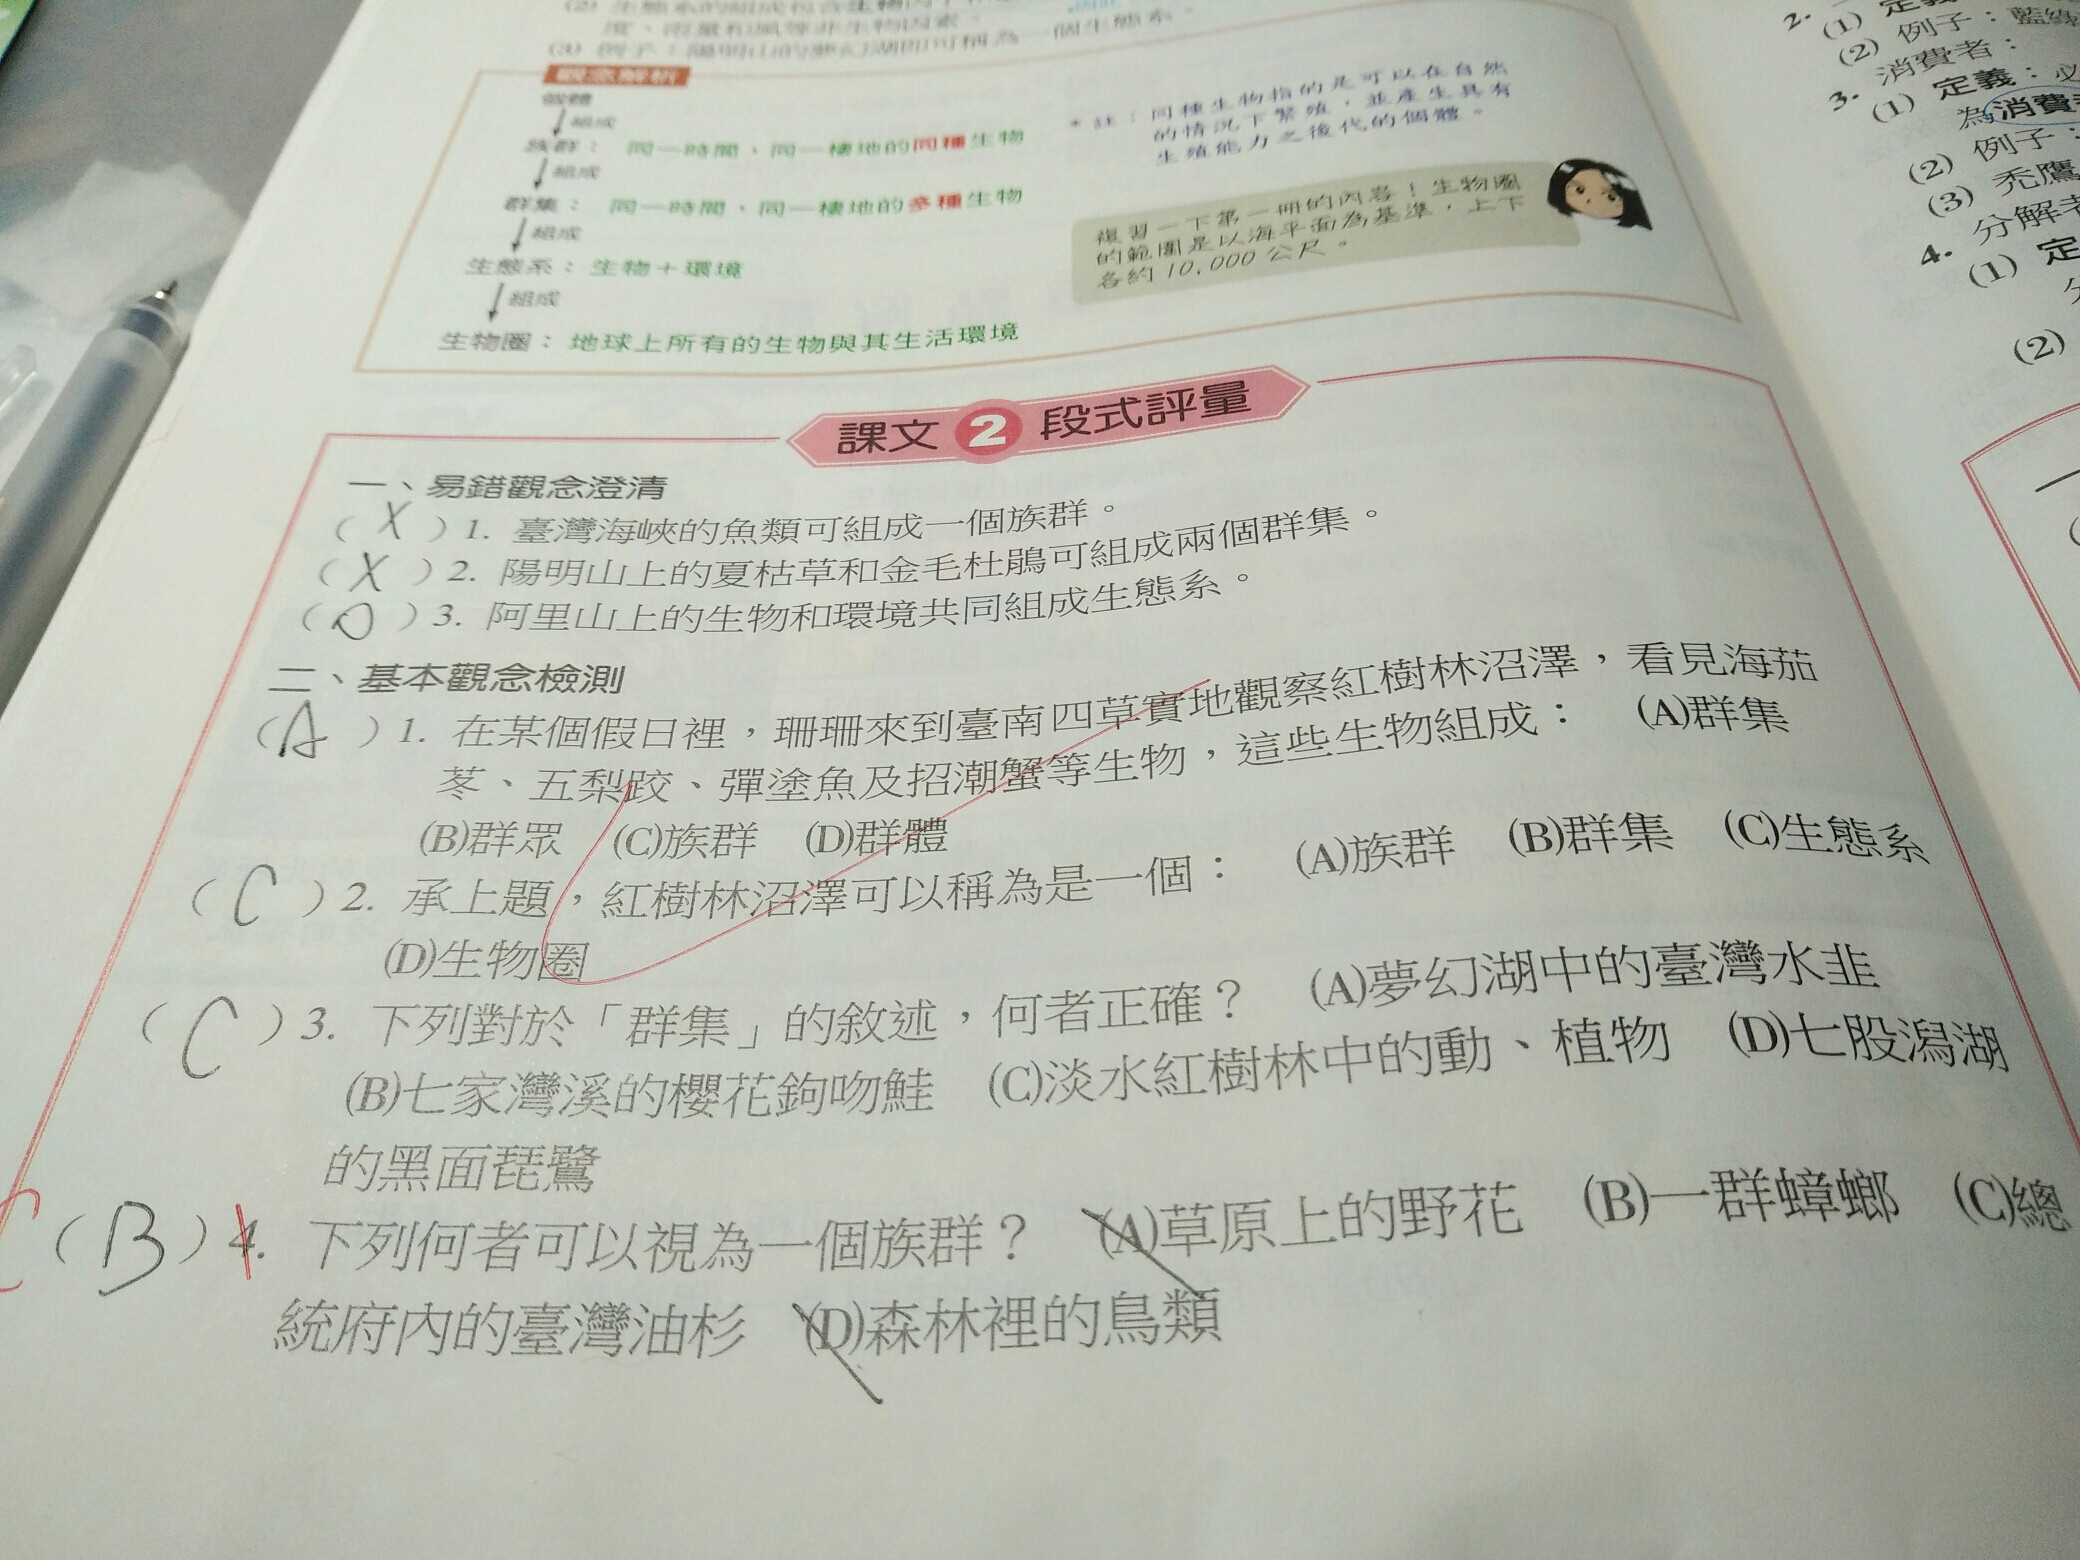 (2) 生態系的組成包含生物
度、雨量和風等非生物因素。
(3) 例子：陽明山的夢幻湖即可稱為一個生態系。
觀念解析
個體
組成
族群：同一時間、同一棲地的同種生物
組成
群集：同一時間、同一棲地的多種生物
組成
生態系：生物＋環境
組成
生物圈：地球上所有的生物與其生活環境
*註：同種生物指的是可以在自然
的情況下繁殖，並產生具有
生殖能力之後代的個體。
複習一下第一冊的內容！生物圈
的範圍是以海平面為基準，上下
各約10,000公尺。
課文2段式評量
一、易錯觀念澄清
（X）1. 臺灣海峽的魚類可組成一個族群。
（X）2. 陽明山上的夏枯草和金毛杜鵑可組成兩個群集。
（O）3. 阿里山上的生物和環境共同組成生態系。
二、基本觀念檢測
（A）1. 在某個假日裡，珊珊來到臺南四草實地觀察紅樹林沼澤，看見海茄
苳、五梨跤、彈塗魚及招潮蟹等生物，這些生物組成： (A)群集
(B)群眾 (C)族群 (D)群體
（C）2. 承上題，紅樹林沼澤可以稱為是一個： (A)族群 (B)群集 (C)生態系
(D)生物圈
（C）3. 下列對於「群集」的敘述，何者正確？ (A)夢幻湖中的臺灣水韭
(B)七家灣溪的櫻花鉤吻鮭 (C)淡水紅樹林中的動、植物 (D)七股潟湖
的黑面琵鷺
C（B）4. 下列何者可以視為一個族群？ (A)草原上的野花 (B)一群蟑螂 (C)總
統府內的臺灣油杉 (D)森林裡的鳥類
2.
(1) 定義
(2) 例子：藍綠
3. 消費者：
(1) 定義：必
為消費
(2) 例子：
(3) 禿鷹
4. 分解者
(1) 定
(2)